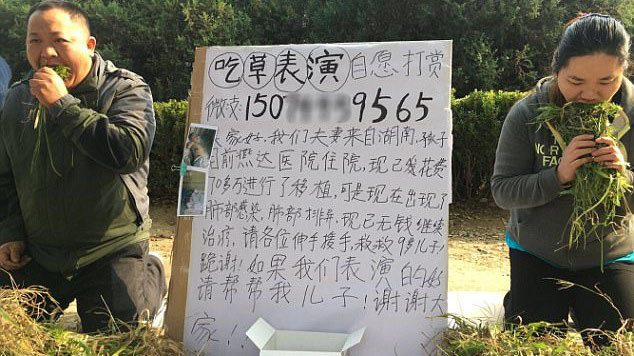 吃草表演自愿打赏
微支:150 9565
大家好,我们夫妻来自湖南,孩子
目前燕达医院住院,现已发花费
70多万进行了移植,可是现在出现了
肺部感染,肺部排异,现已无钱继续
治疗,请各位伸手援手,救救9岁儿子
跪谢!如果我们表演的好
请帮帮我儿子!谢谢大
家!!
NORTH
FACE